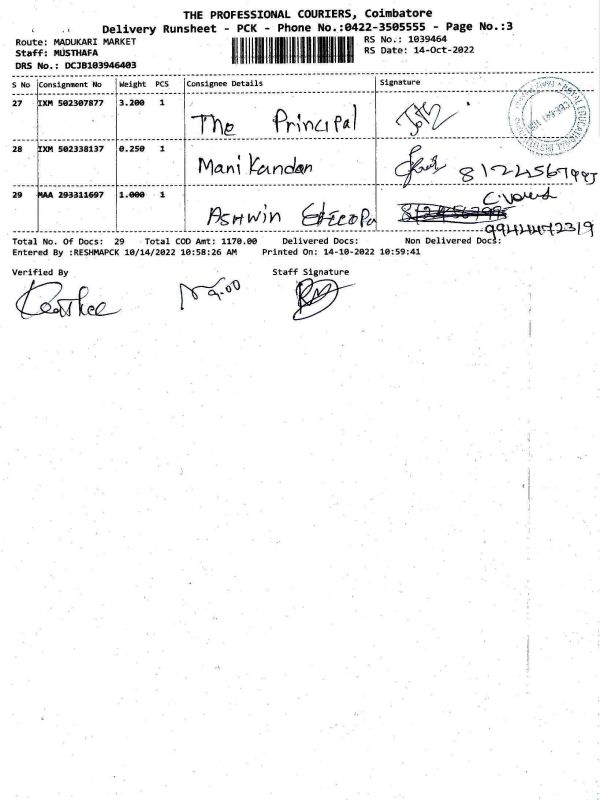 THE PROFESSIONAL COURIERS, Coimbatore
Delivery Runsheet - PCK - Phone No.:0422-3505555 - Page No.:3
Route: MADUKARI MARKET
RS No.: 1039464
Staff: MUSTHAFA
RS Date: 14-Oct-2022
DRS No.: DCJB103946403
S No Consignment No Weight PCS Consignee Details Signature
27 IXM 502307877 3.200 1
The Principal
28 IXM 502338137 0.250 1
Mani Kandan
29 MAA 293311697 1.000 1
Ashwin
9944472319
Total No. Of Docs: 29 Total COD Amt: 1170.00 Delivered Docs: Non Delivered Docs:
Entered By :RESHMAPCK 10/14/2022 10:58:26 AM Printed On: 14-10-2022 10:59:41
Verified By Staff Signature